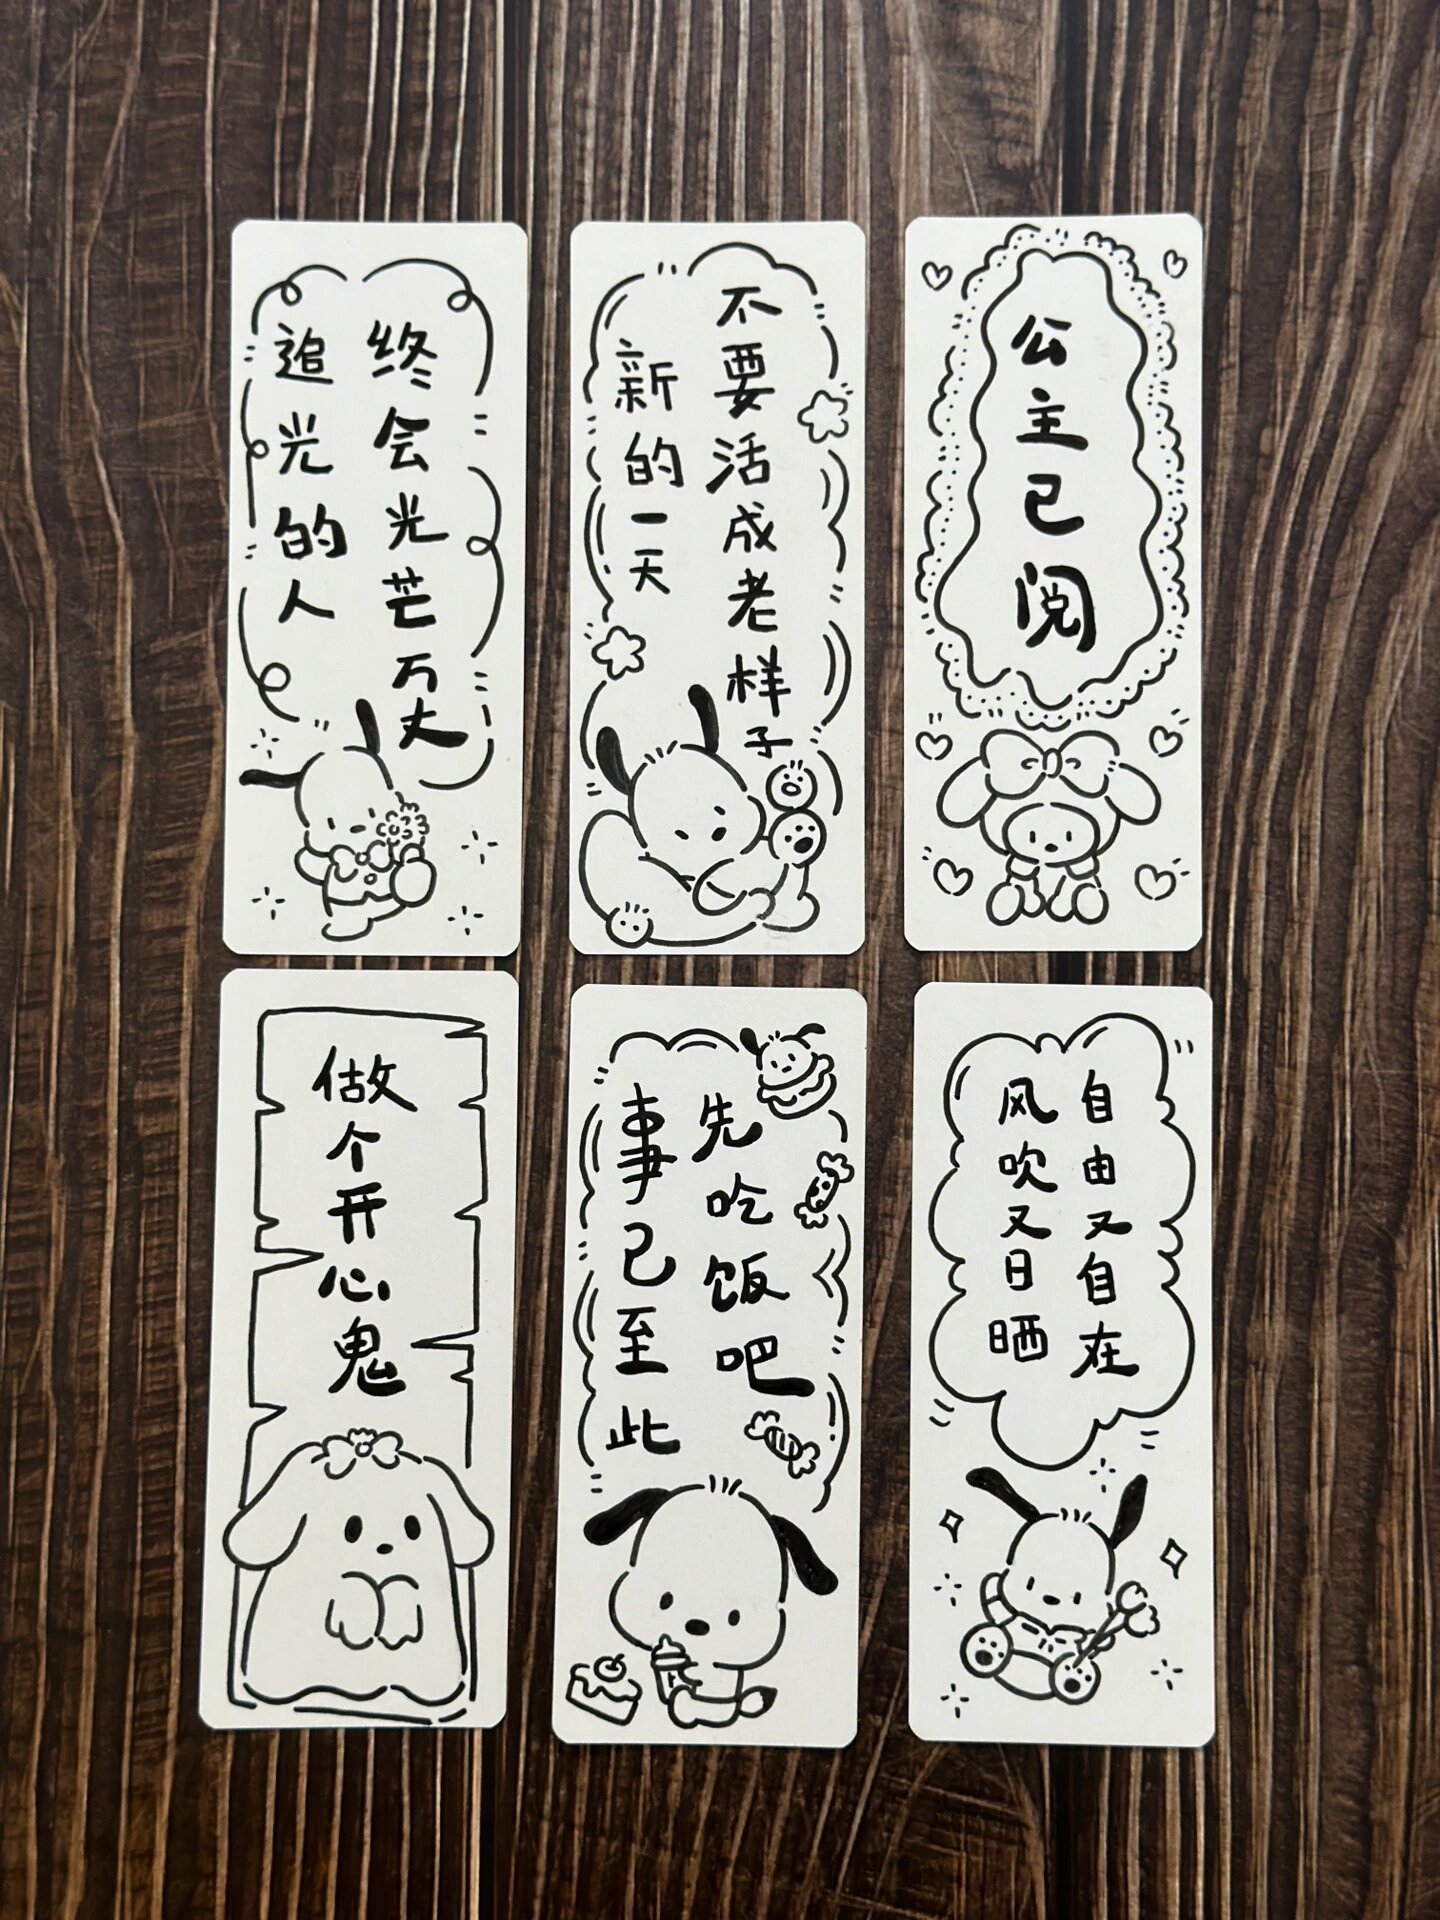 追光的人
终会光芒万丈
新的一天
不要活成老样子
公主已阅
做个开心鬼
事已至此
先吃饭吧
风吹又日晒
自由又自在